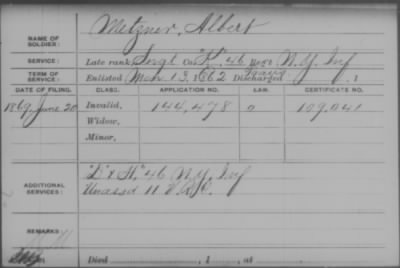 NAME OF SOLDIER: Metzner, Albert
SERVICE: Late rank, Sergt Co. "K", 46 Reg't N.Y. Inf
TERM OF SERVICE: Enlisted Mch. 13, 1862 Discharged , 1
DATE OF FILING. CLASS. APPLICATION NO. LAW. CERTIFICATE NO.
1869, June 20 Invalid, 144,478 O 109,041
Widow,
Minor,
ADDITIONAL SERVICES: "D" & "H", 46 N.Y. Inf
Unassd 11 V.R.C.
REMARKS:
Died , 1 , at